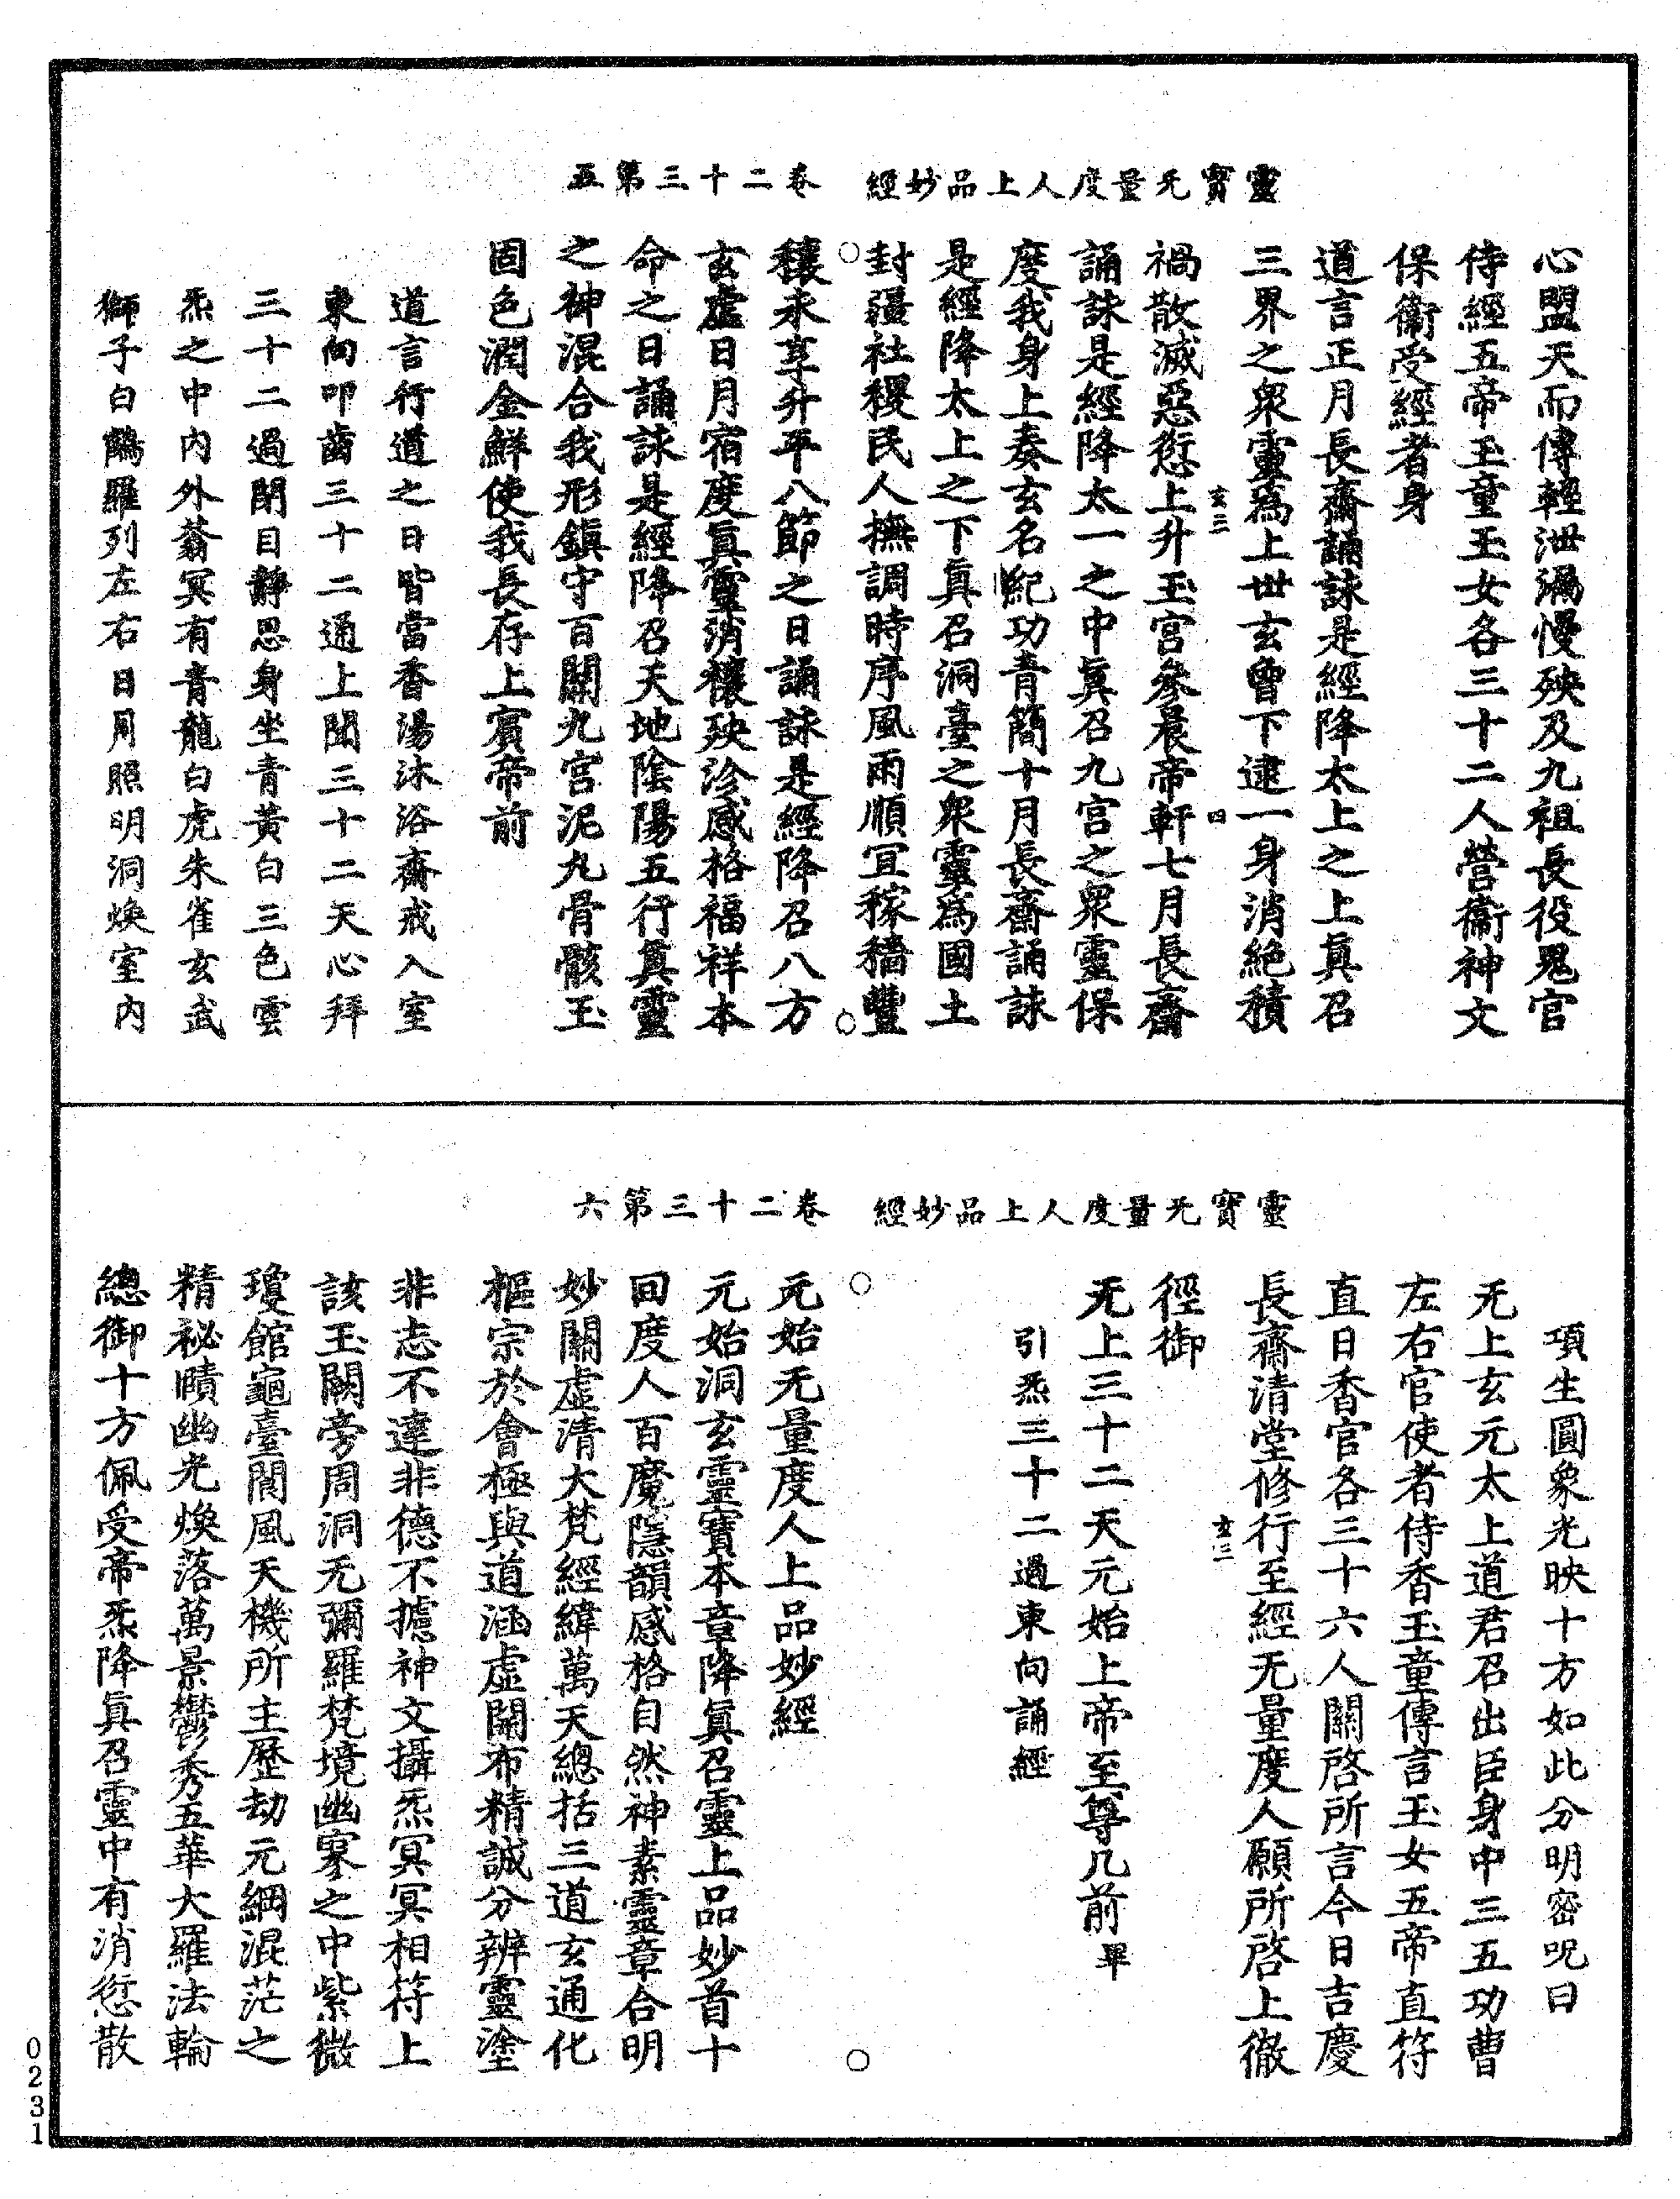 靈寶无量度人上品妙經　卷二十三第五
心盟天而傳輕泄漏慢殃及九祖長役鬼官
侍經五帝玉童玉女各三十二人營衞神文
保衞受經者身
道言正月長齋誦詠是經降太上之上眞召
三界之衆靈爲上世玄曾下逮一身消絶積
玄三　四
禍散滅惡愆上升玉宮參晨帝軒七月長齋
誦詠是經降太一之中眞召九宮之衆靈保
度我身上奏玄名紀功青簡十月長齋誦詠
是經降太上之下眞召洞臺之衆靈爲國土
封疆社稷民人撫調時序風雨順宜稼穡豐
穰永享升平八節之日誦詠是經降召八方
玄虛日月宿度眞靈消穰殃沴感格福祥本
命之日誦詠是經降召天地陰陽五行眞靈
之神混合我形鎭守百關九宮泥丸骨骸玉
固色潤金鮮使我長存上賓帝前
道言行道之日皆當香湯沐浴齋戒入室
東向叩齒三十二通上聞三十二天心拜
三十二過閉目靜思身坐青黃白三色雲
炁之中內外蓊冥有青龍白虎朱雀玄武
獅子白鶴羅列左右日月照明洞煥室內
靈寶无量度人上品妙經　卷二十三第六
項生圓象光映十方如此分明密呪曰
无上玄元太上道君召出臣身中三五功曹
左右官使者侍香玉童傳言玉女五帝直符
直日香官各三十六人關啓所言今日吉慶
長齋清堂修行至經无量度人願所啓上徹
玄三
徑御
无上三十二天元始上帝至尊几前畢
引炁三十二過東向誦經
元始无量度人上品妙經
元始洞玄靈寶本章降眞召靈上品妙首十
回度人百魔隱韻感格自然神素靈章合明
妙關虛清大梵經緯萬天總括三道玄通化
樞宗於會極與道涵虛開布精誠分辨靈塗
非志不達非德不攄神文攝炁冥冥相符上
該玉闕旁周洞无彌羅梵境幽寥之中紫微
瓊館龜臺閬風天機所主歷劫元綱混茫之
精祕賾幽光煥落萬景鬱秀五華大羅法輪
總御十方佩受帝炁降眞召靈中有消愆散
0231